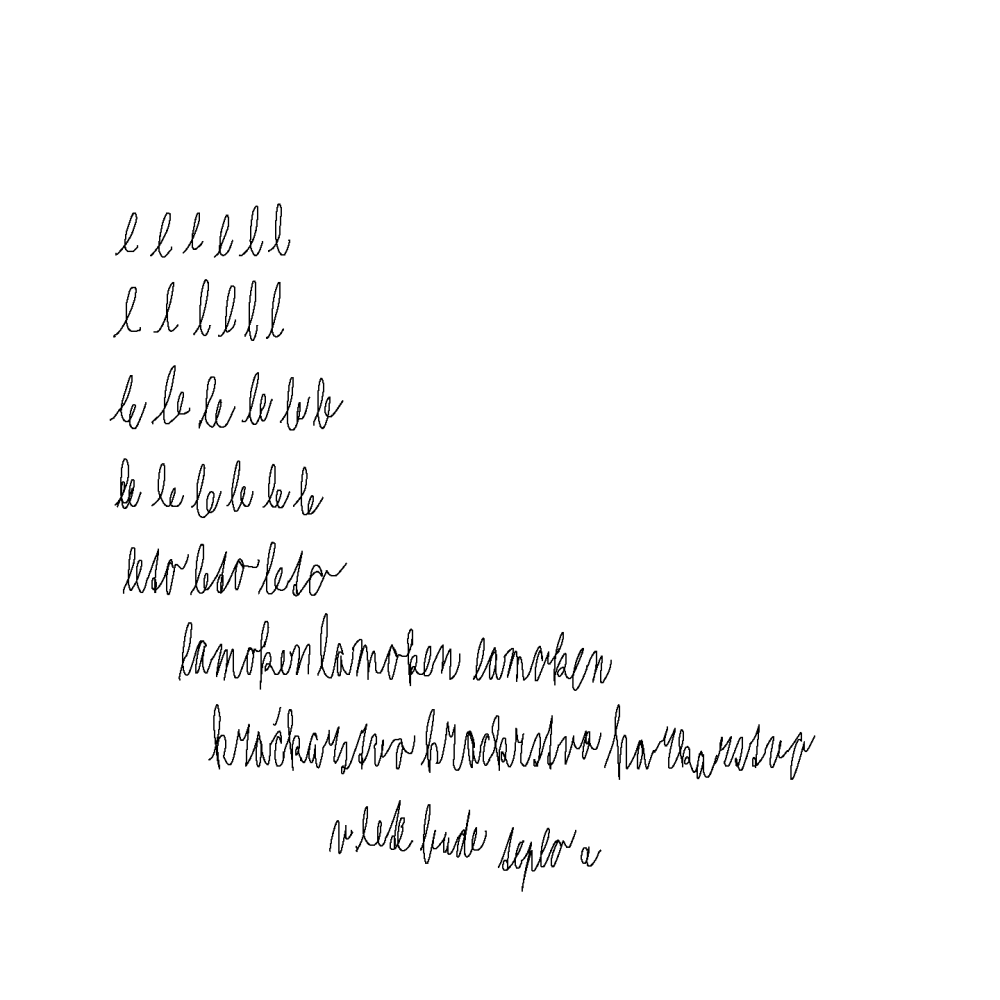 l l l l l l
l l l l l l
le le le le le le
le le le le le le
leto leto leto
lamoken lamoken lamoken
hračkarstvo hrackrstvo harkarstvo
v lete bude teplo a